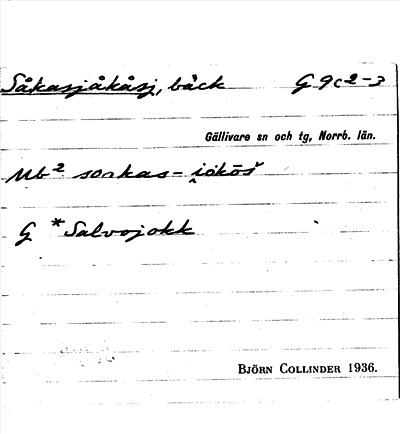 Såkasjåkåsj, bäck G 9c2-3
Gällivare sn och tg, Norrb. län.
Ub² soakas- i̯åkōš
G *Salvojokk
BJÖRN COLLINDER 1936.